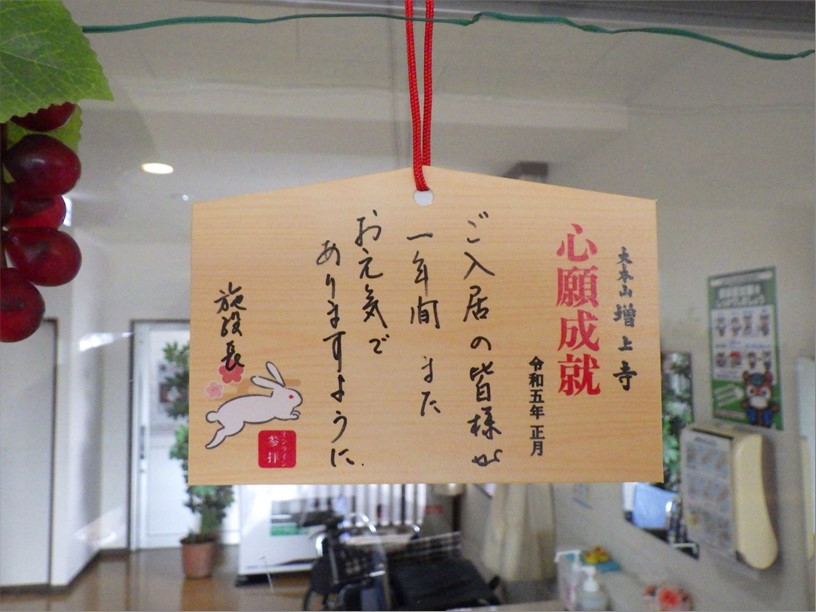 大本山 増上寺
心願成就
令和五年 正月
ご入居の皆様が
一年間 また
お元気で
ありますように.
施設長
オンライン
参拝